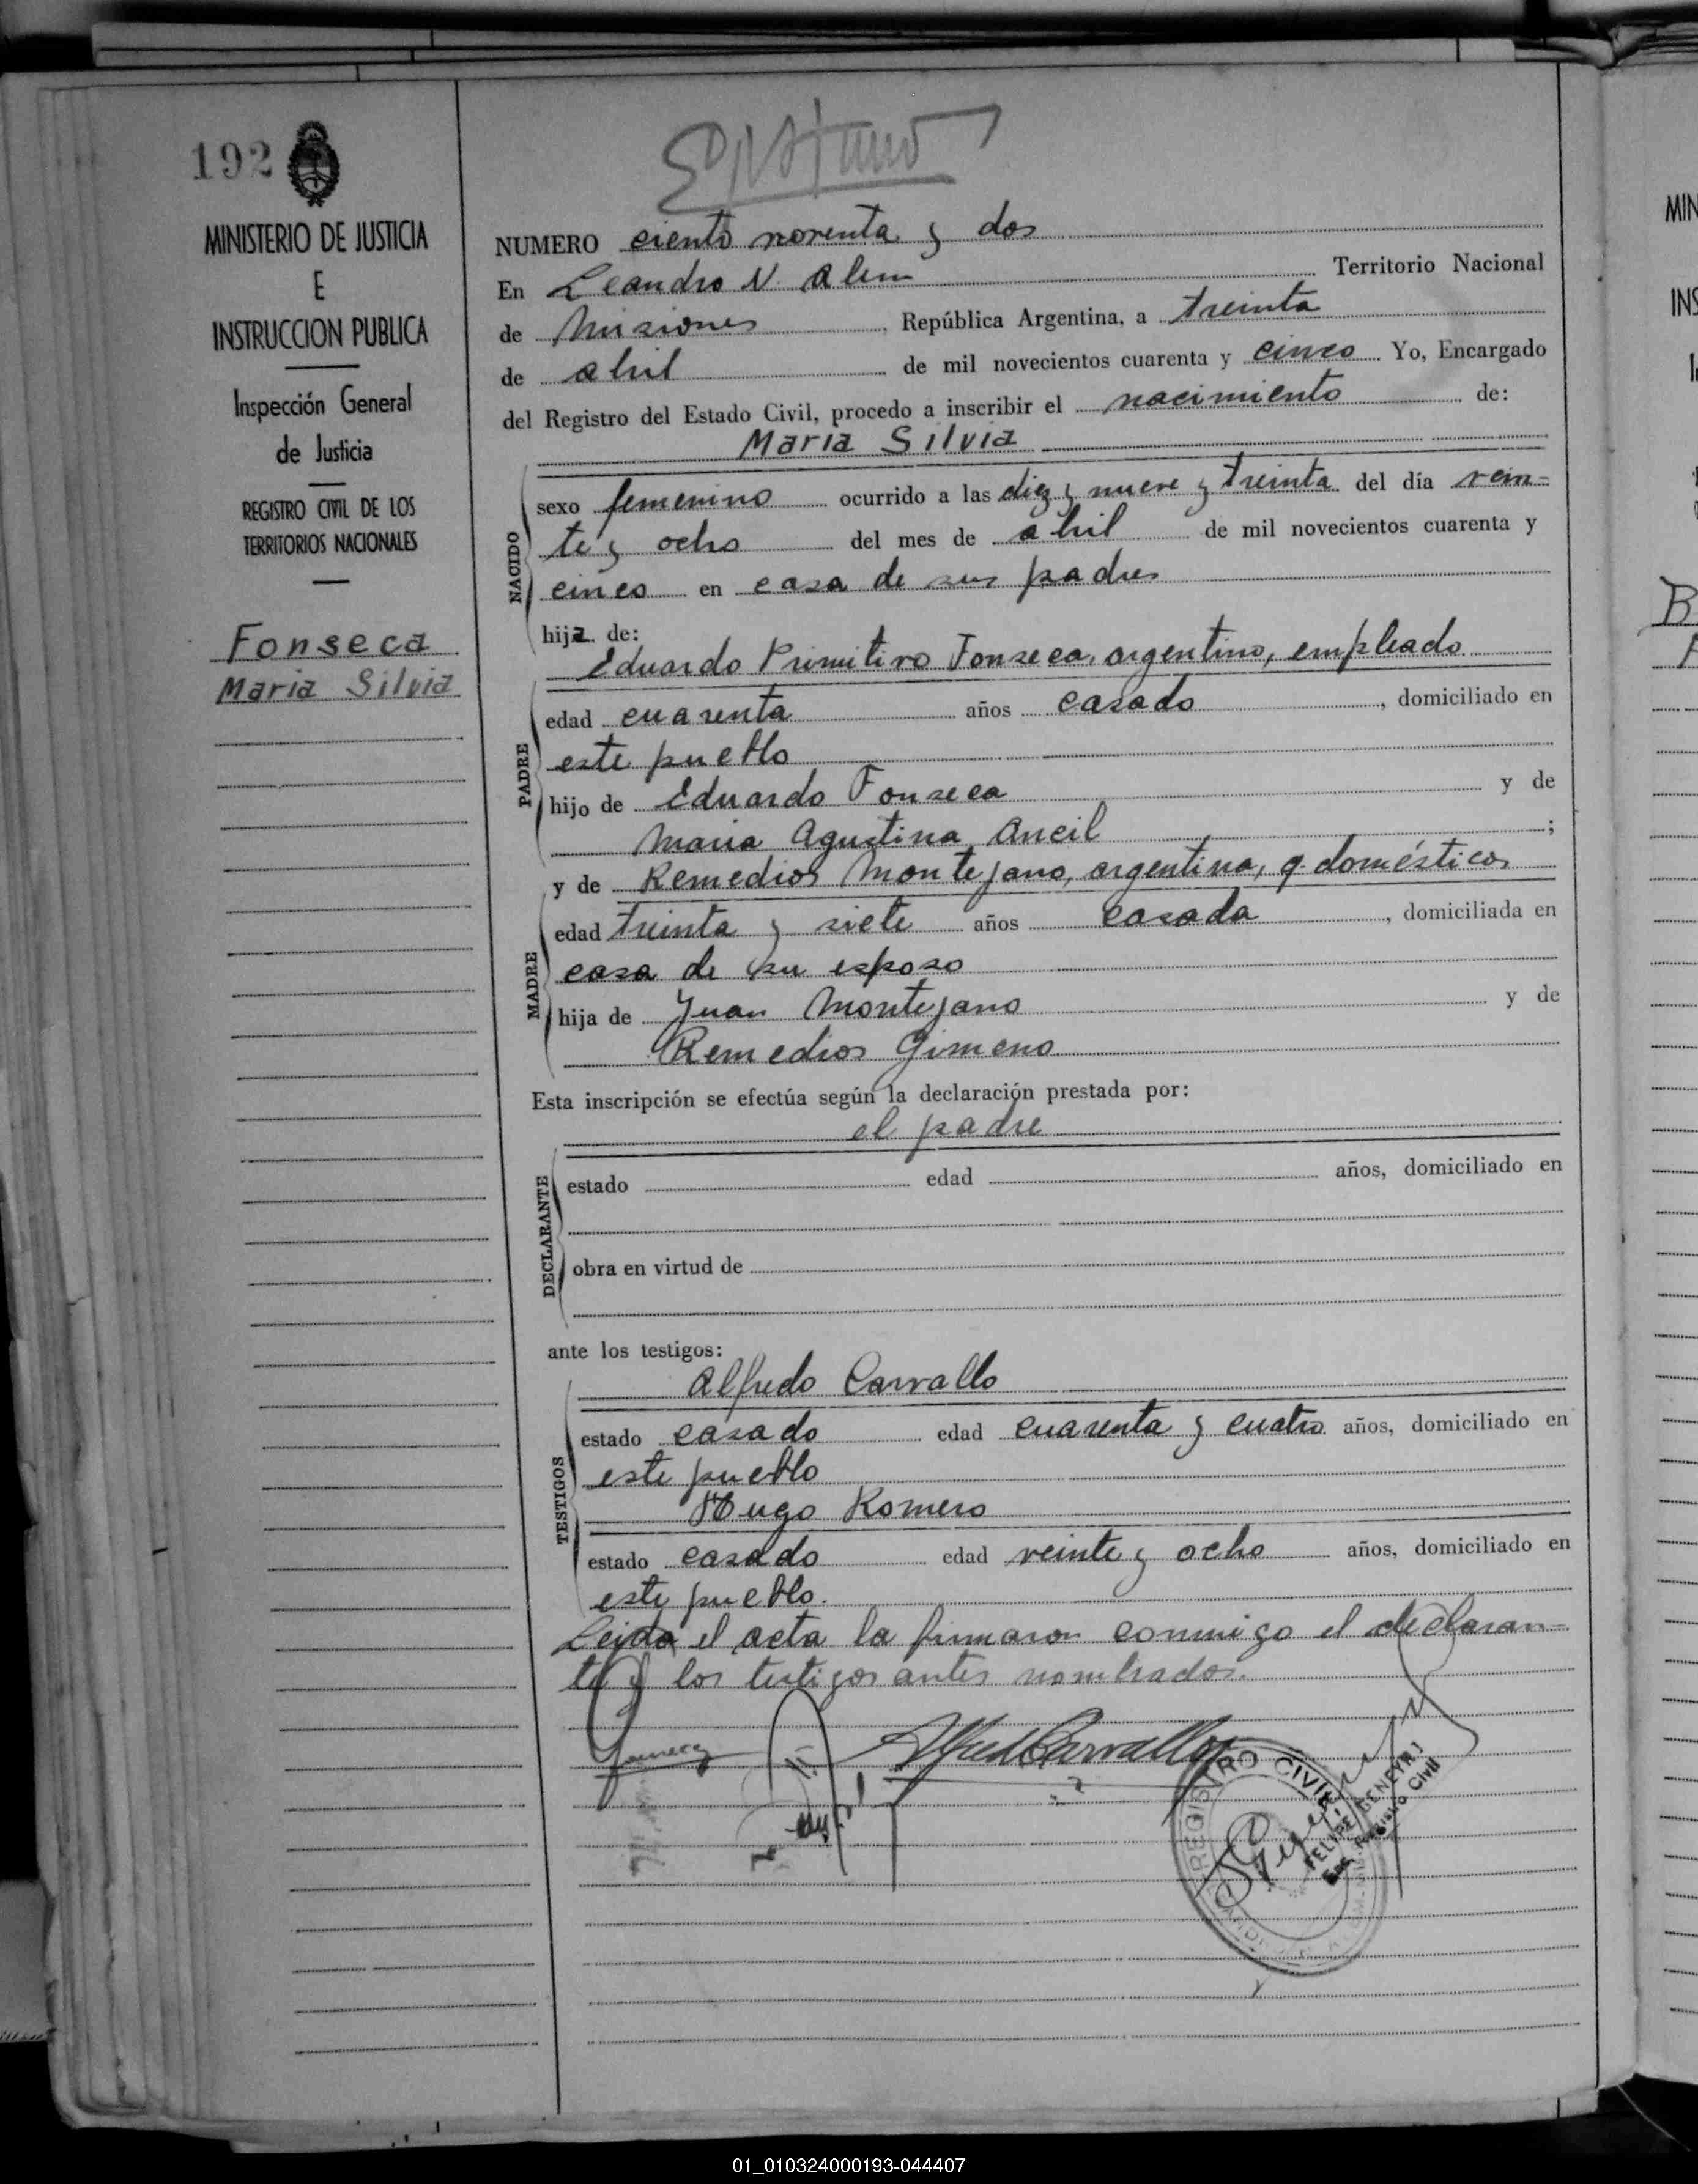 192
MINISTERIO DE JUSTICIA
E
INSTRUCCION PUBLICA
Inspección General
de Justicia
REGISTRO CIVIL DE LOS
TERRITORIOS NACIONALES
Fonseca
Maria Silvia
NUMERO ciento noventa y dos
En Leandro N. Alem Territorio Nacional
de Misiones, República Argentina, a treinta
de abril de mil novecientos cuarenta y cinco Yo, Encargado
del Registro del Estado Civil, procedo a inscribir el nacimiento de:
Maria Silvia
NACIDO
sexo femenino ocurrido a las diez y nueve y treinta del día vein=
te y ocho del mes de abril de mil novecientos cuarenta y
cinco en casa de sus padres
hija de:
Eduardo Primitivo Fonseca, argentino, empleado
PADRE
edad cuarenta años casado, domiciliado en
este pueblo
hijo de Eduardo Fonseca y de
Maria Agustina Ancil;
y de Remedios Montejano, argentina, q. domésticos
MADRE
edad treinta y siete años casada, domiciliada en
casa de su esposo
hija de Juan Montejano y de
Remedios Gimeno
Esta inscripción se efectúa según la declaración prestada por:
el padre
DECLARANTE
estado edad años, domiciliado en
obra en virtud de
ante los testigos:
Alfredo Carvallo
TESTIGOS
estado casado edad cuarenta y cuatro años, domiciliado en
este pueblo
Hugo Romero
estado casado edad veinte y ocho años, domiciliado en
este pueblo.
Leida el acta la firmaron conmigo el declaran=
te y los testigos antes nombrados.
Alfredo Carvallo
REGISTRO CIVIL
FELIPE GENEYRO
Enc. Registro Civil
01_010324000193-044407